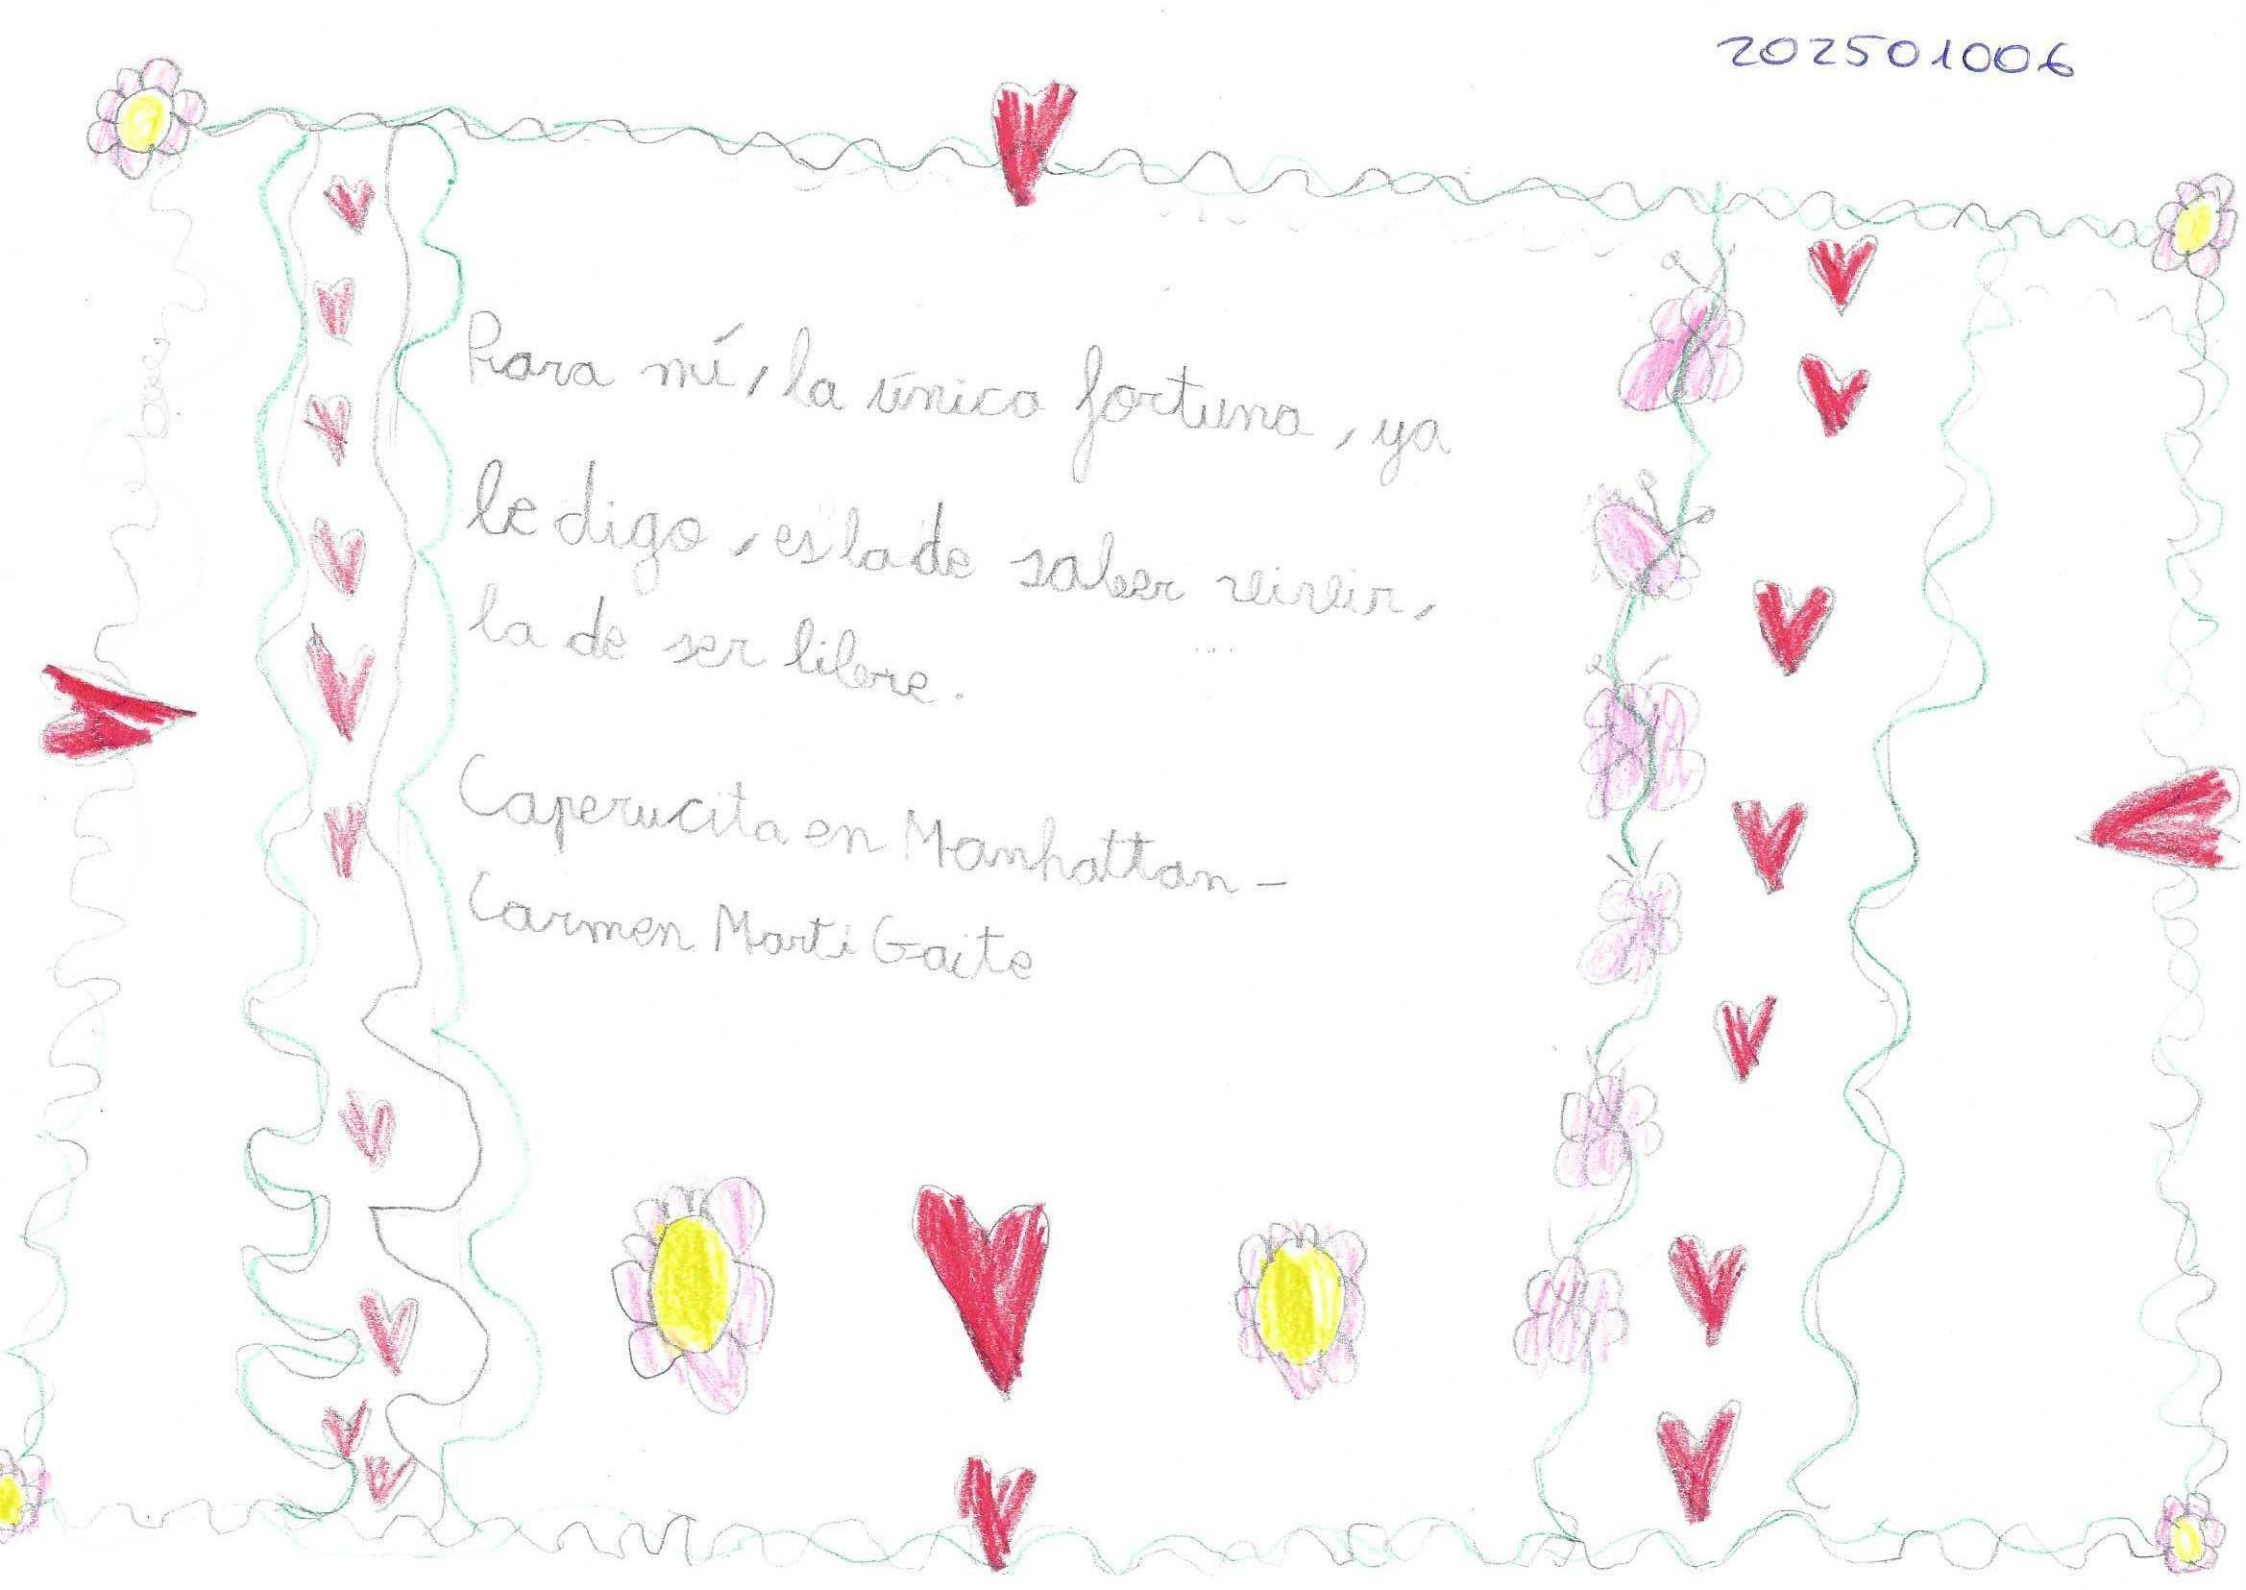 202501006
Para mí, la única fortuna, ya
le digo, es la de saber vivir,
la de ser libre.
Caperucita en Manhattan-
Carmen Marti Gaite